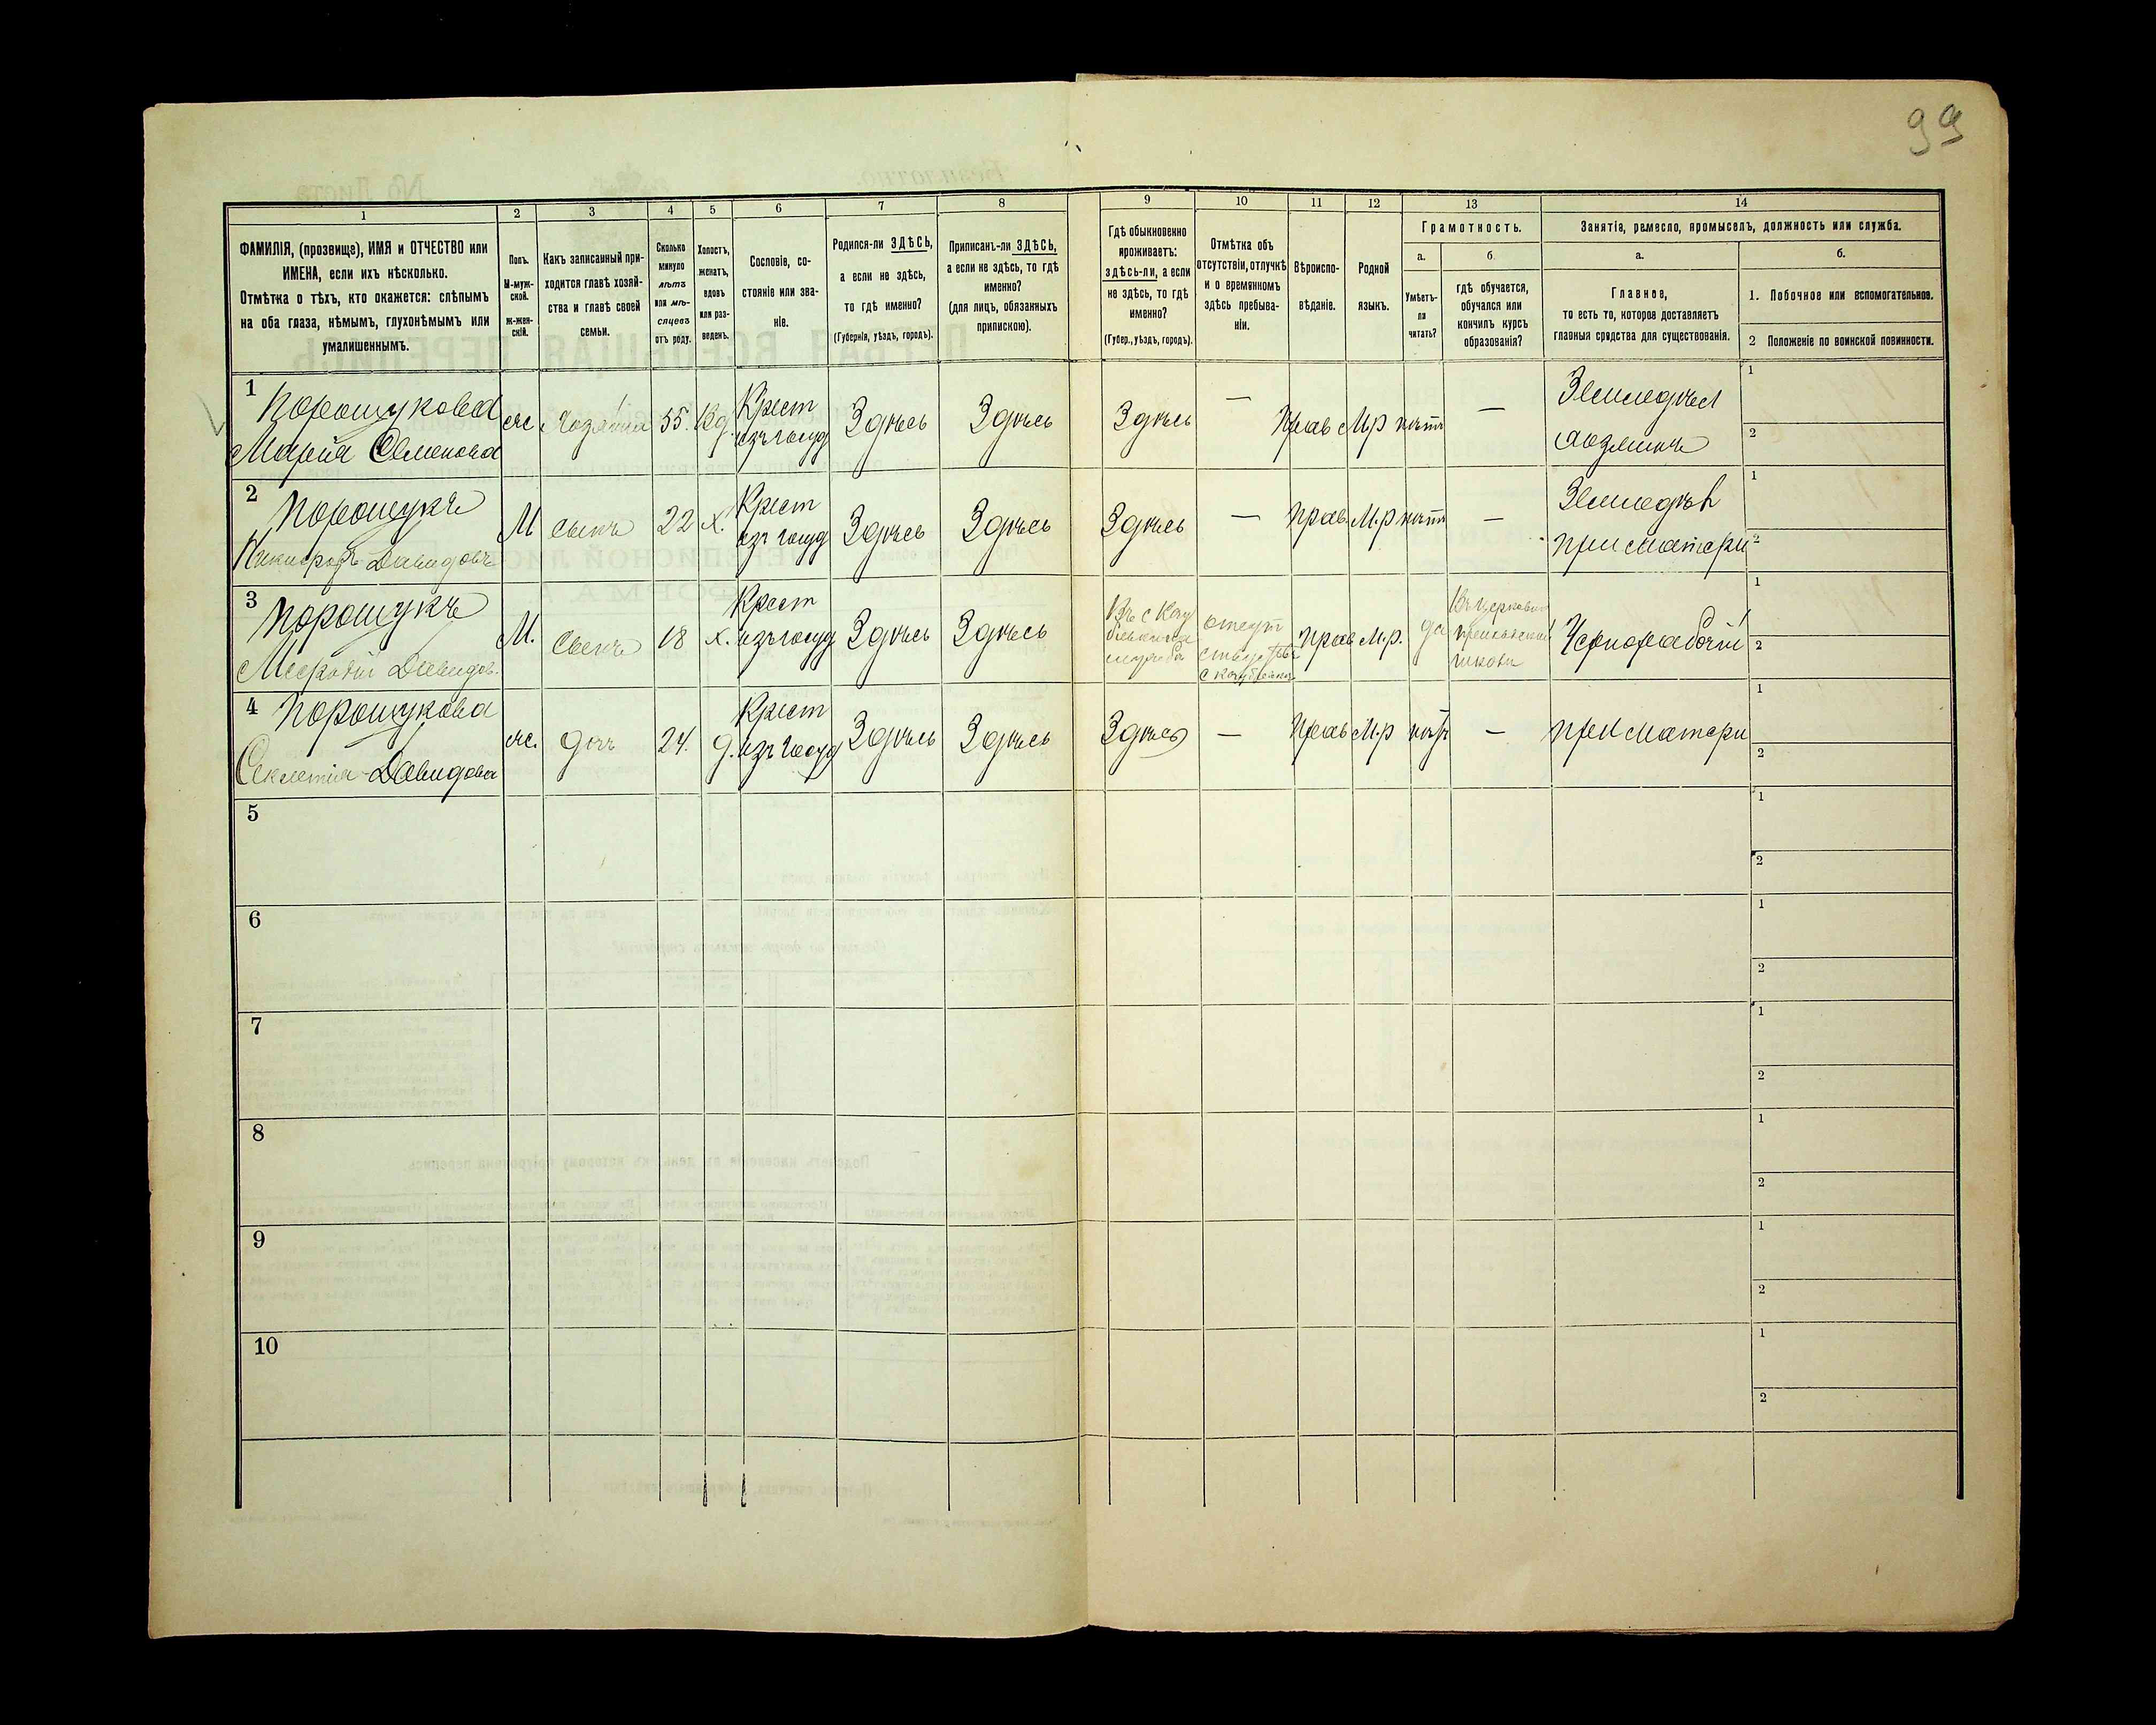 99
1
2
3
4
5
6
7
8
9
10
11
12
13
14
ФАМИЛІЯ, (прозвище), ИМЯ и ОТЧЕСТВО или
ИМЕНА, если ихъ нѣсколько.
Отмѣтка о тѣхъ, кто окажется: слѣпымъ
на оба глаза, нѣмымъ, глухонѣмымъ или
умалишеннымъ.
Полъ.
М-муж-
ской.
ж-жен-
скій.
Какъ записанный при-
ходится главѣ хозяй-
ства и главѣ своей
семьи.
Сколько
минуло
лѣтъ
или мѣ-
сяцевъ
отъ роду.
Холостъ,
женатъ,
вдовъ
или раз-
веденъ.
Сословіе, со-
стояніе или зва-
ніе.
Родился-ли ЗДѢСЬ,
а если не здѣсь,
то гдѣ именно?
(Губернія, уѣздъ, городъ).
Приписанъ-ли ЗДѢСЬ,
а если не здѣсь, то гдѣ
именно?
(для лицъ, обязанныхъ
припискою).
Гдѣ обыкновенно
проживаетъ:
здѣсь-ли, а если
не здѣсь, то гдѣ
именно?
(Губер., уѣздъ, городъ).
Отмѣтка объ
отсутствіи, отлучкѣ
и о временномъ
здѣсь пребыва-
ніи.
Вѣроиспо-
вѣданіе.
Родной
языкъ.
Грамотность.
а.
Умѣетъ-
ли
читать?
б.
гдѣ обучается,
обучался или
кончилъ курсъ
образованія?
Занятія, ремесло, промыселъ, должность или служба.
а.
Главное,
то есть то, которое доставляетъ
главныя средства для существованія.
б.
1. Побочное или вспомогательное.
2 Положеніе по воинской повинности.
1
Порощукова
Марія Семенова
ж
Хозяйка
55.
Вд.
Крест
изъ госуд
Здѣсь
Здѣсь
Здѣсь
—
прав
М.р
нѣтъ
—
Земледѣл
хозяинъ
1
2
2
Порощукъ
Никифоръ Давидовъ
М
сынъ
22
х.
Крест
изъ госуд
Здѣсь
Здѣсь
Здѣсь
—
прав.
М.р
нѣтъ
—
Земледѣл
при матери
1
2
3
Порощукъ
Давидов.
М.
Сынъ
18
х.
Крест
изъ госуд
Здѣсь
Здѣсь
прав
М.р.
да
Въ церковно
приходской
школѣ
Чернорабочій
1
2
4
Порощукова
Секлетія Давидова
ж.
дочь
24.
д.
Крест
изъ госуд
Здѣсь
Здѣсь
Здѣсь
—
прав
М.р
нѣтъ
—
при матери
1
2
5
1
2
6
1
2
7
1
2
8
1
2
9
1
2
10
1
2